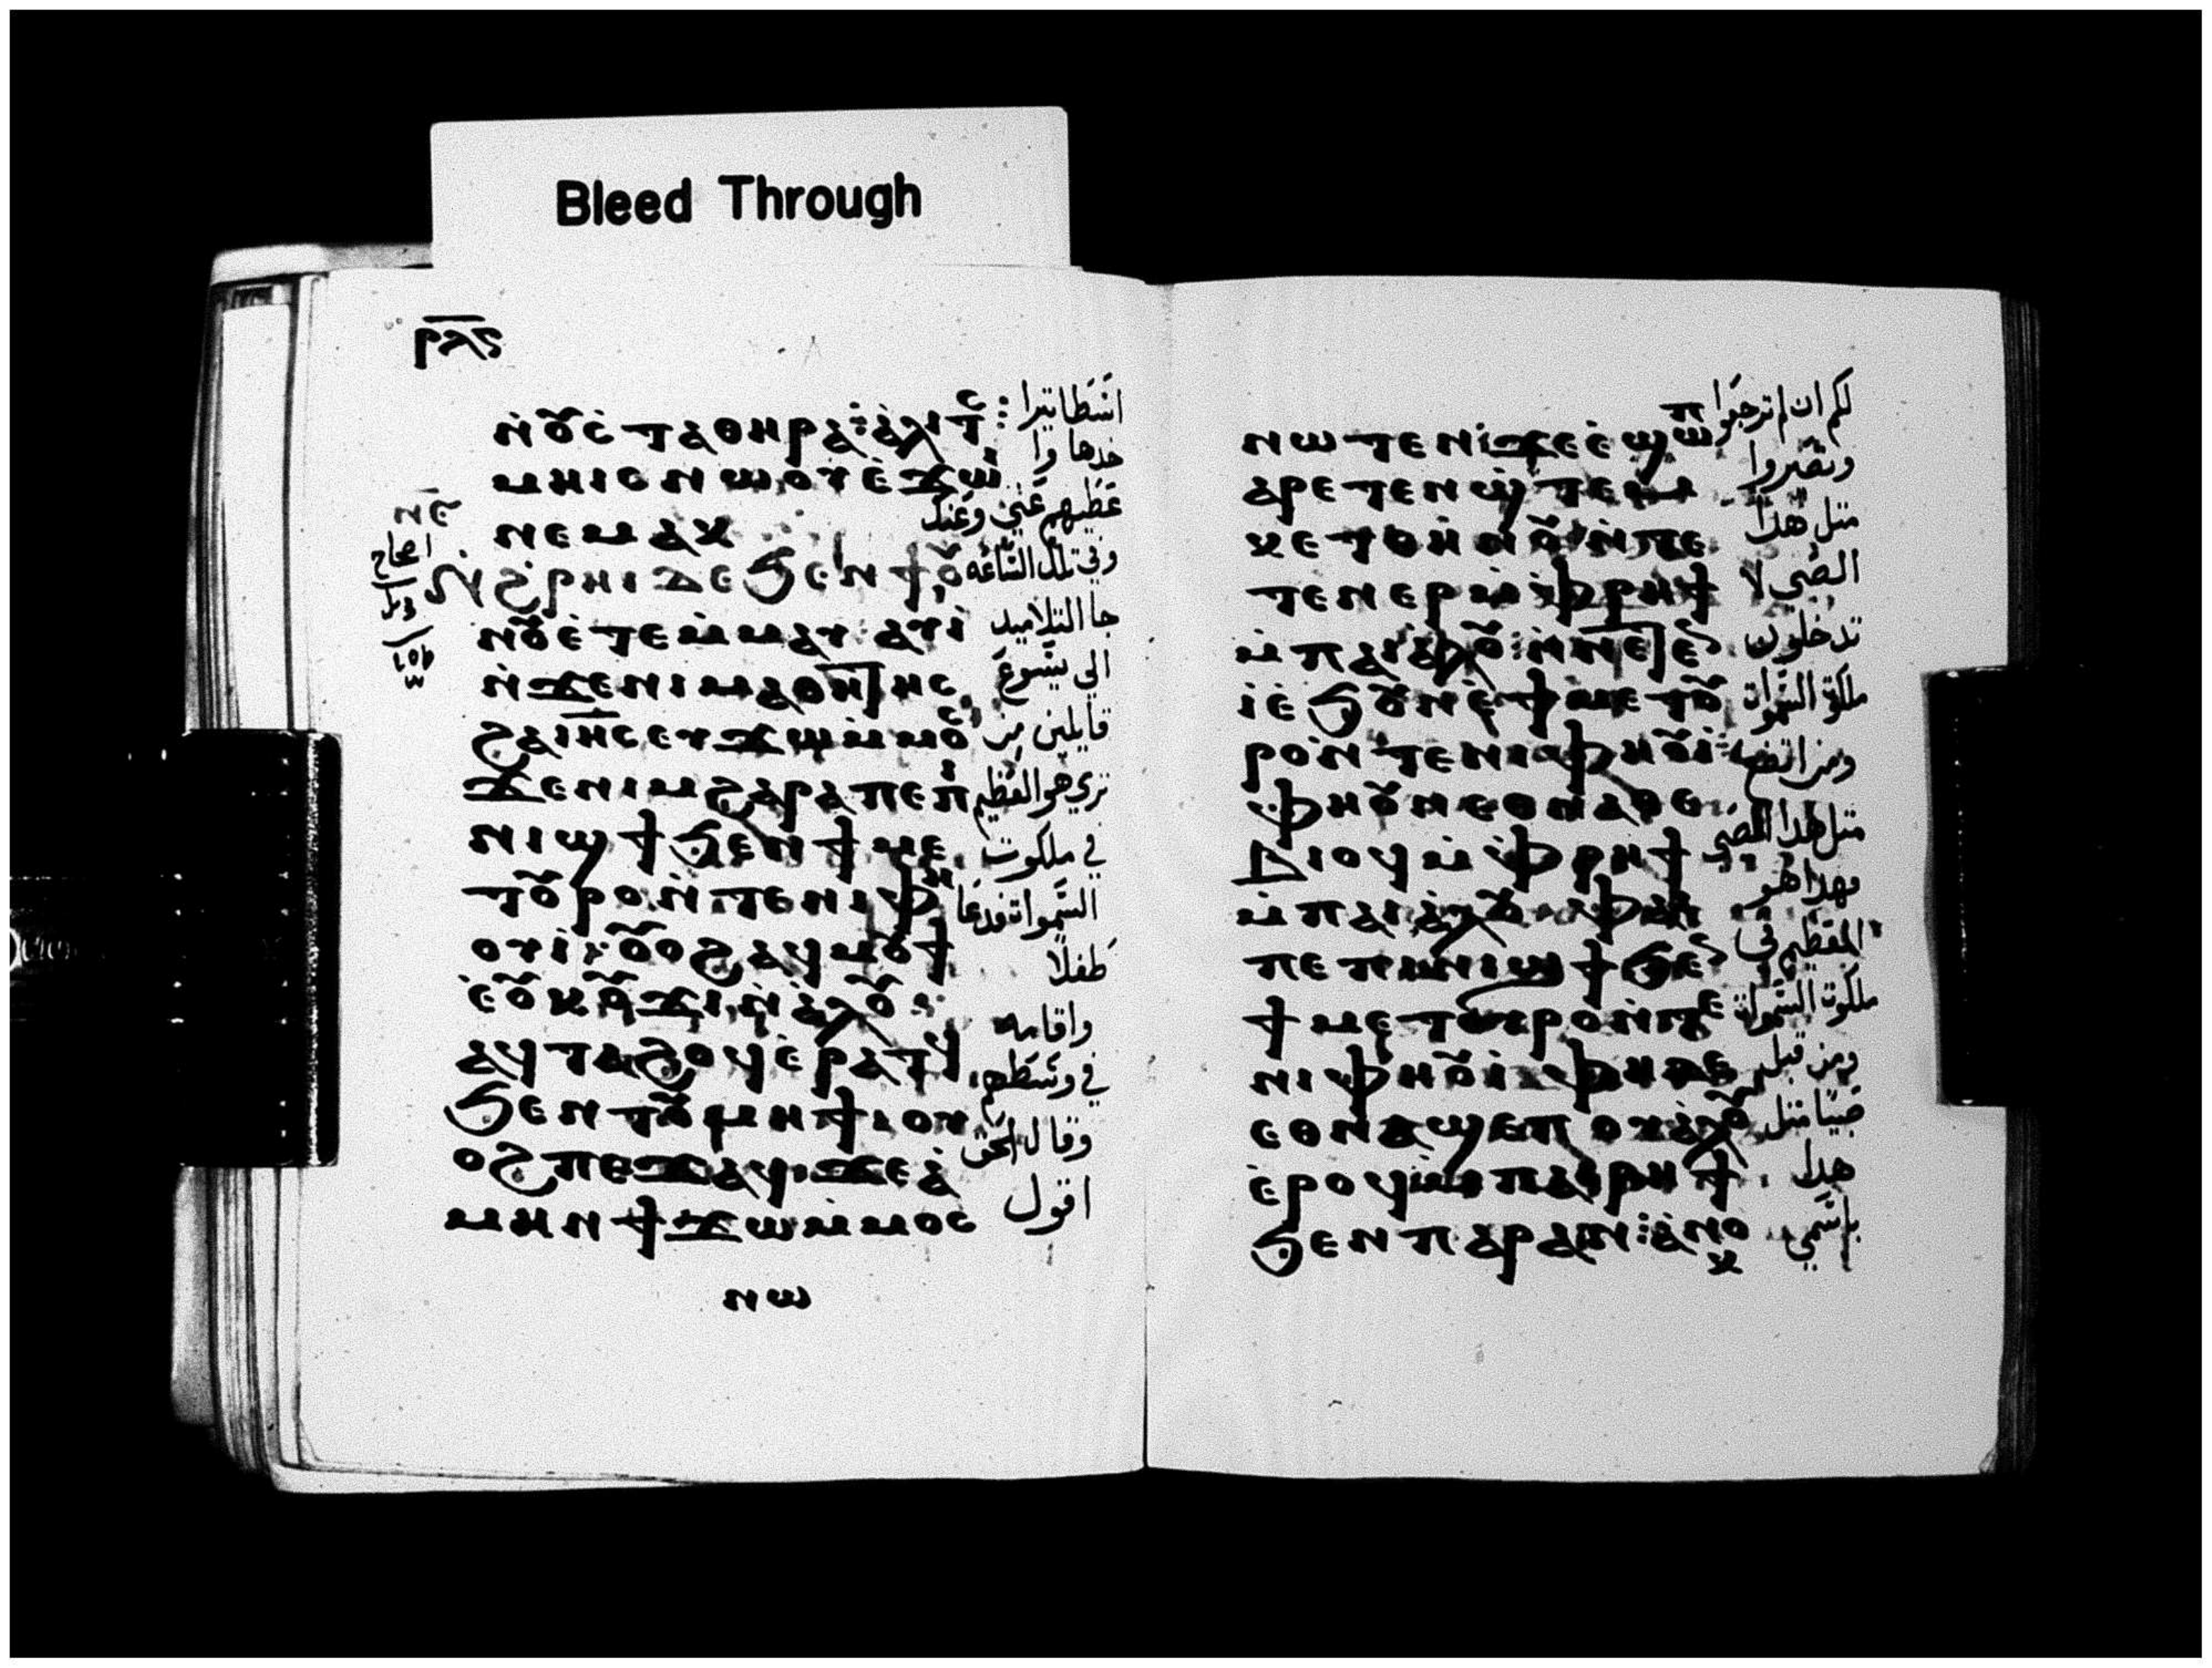 Bleed Through
ⲣⲗⲋ
ⲛ̀ⲟ̆ⲥ̀ⲧⲁⲑⲏⲣⲁ⁝ ⲁ̀ⲗⲓⲧⲥ :
ⲙⲏⲓⲥⲛⲱⲟⲩⲉ̀ϫⲱⲓ
ⲛⲉⲙⲁⲕ
ⲛ̀ϩ̀ⲣⲏⲓⲇⲉϧⲉⲛϯⲟ̆
ⲛⲟ̆ⲉ̀ⲧⲉⲙ̀ⲙⲁⲩ ⲁⲩⲓ̀
ⲛ̀ϫⲉⲛⲓⲙⲁⲑⲏⲧⲏⲥ
ϩⲁⲓⲏⲥⲉⲩϫⲱⲙ̀ⲙⲟⲥ
ϫⲉⲛⲓⲙϩⲁⲣⲁⲡⲉⲡⲓ
ⲛⲓϣϯϧⲉⲛϯⲙⲉ
ⲧⲟ̆ⲣⲟⲛ̀ⲧⲉⲛⲓⲫⲏ
ⲟⲩⲓ̀: ⲟ̆ⲟϩⲁϥⲙⲟ̆ϯ
ⲉ̀ⲟ̆ⲕⲟ̆ϫⲓⲛ̀ⲁ̀ⲗⲟ̆:
ⲁϥⲧⲁϩⲟϥⲉ̀ⲣⲁⲧϥ
ϧⲉⲛⲧⲟ̆ⲙⲏϯⲟⲩ
ⲟϩⲡⲉϫⲁϥϫⲉⲁ̀
ⲙⲏⲛϯϫⲱⲙ̀ⲙⲟⲥ
ⲛⲱ
اسطاتيرا
خدها وا
عطيهم عني وعنك
وفي تلك الساعه
جا التلاميد
الى يسوع
قايلين من
تري هو العظيم
في ملكوت
السموات فدعا
طفلا
واقامه
في وسطهم
وقال الحق
اقول
ⲛⲱⲧⲉⲛ̀ϫⲉⲉ̀ϣⲱⲡ
ⲁⲣⲉⲧⲉⲛϣ̀ⲧⲉⲙ
ⲕⲉⲧⲑⲏⲛⲟ̆ⲛ̀ⲧⲉ
ⲧⲉⲛⲉⲣⲙ̀ⲫⲣⲏϯ
ⲙ̀ⲡⲁⲓⲁ̀ⲗⲟ̆: ⲛ̀ⲛⲉⲧⲉⲛ
ⲓ̀ⲉ̀ϧⲟ̆ⲛⲉ̀ϯⲙⲉⲧⲟ̆
ⲣⲟⲛ̀ⲧⲉⲛⲓⲫⲏⲟ̆ⲓ̀:
ⲫⲏⲟ̆ⲛⲉⲑⲛⲁⲑⲉ
ⲃⲓⲟϥⲙ̀ⲫⲣⲏϯ
ⲙ̀ⲡⲁⲓⲁ̀ⲗⲟ̆ ⲫⲁⲓ
ⲡⲉⲡⲓⲛⲓϣϯϧⲉⲛ
ϯⲙⲉⲧⲟⲩⲣⲟⲛ̀ⲧⲉ
ⲛⲓⲫⲏⲟ̆ⲓ̀ ⲫⲏⲇⲉ
ⲉⲑⲛⲁϣⲉⲡⲟⲩⲁ̀ⲗⲟ̆
ⲉ̀ⲣⲟϥⲙ̀ⲡⲁⲓⲣⲏϯ
ϧⲉⲛⲡⲁⲣⲁⲛ⁝ ⲁ̀ⲛⲟⲕ
لكم ان لم ترجعوا
وتصيروا
متل هدا
الصبى لا
تدخلون
ملكوة السموات
ومن اتضع
متل هدا الصبي
فهدا هو
العظيم في
ملكوت السموات
ومن قبل
صبيا متل
هدا
باسمي